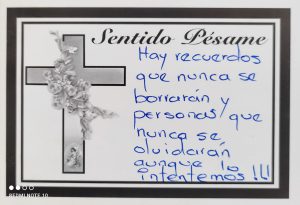 Sentido Pésame
Hay recuerdos
que nunca se
borrarán y
personas que
nunca se
olvidarán
aunque lo
intentemos !!!
REDMI NOTE 10